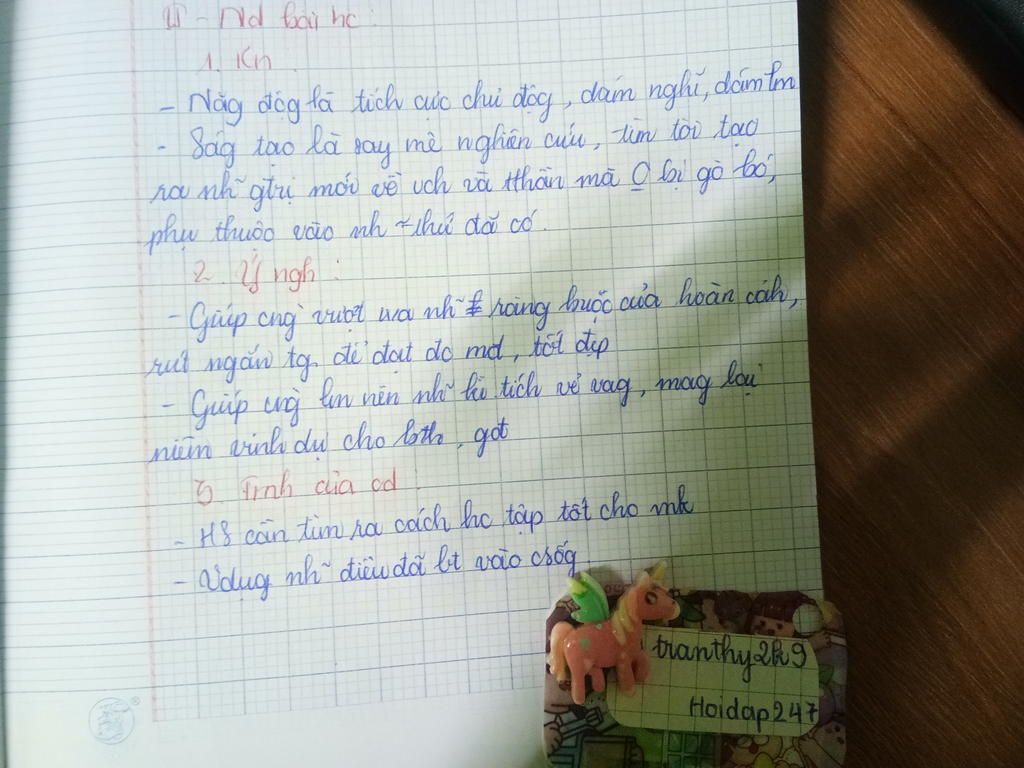 II - Nd bài hc :
1. Kn
- Năg độg là tích cực chủ độg, dám nghĩ, dám lm
- Ság tạo là say mê nghiên cứu, tìm tòi tạo
ra nh~ gtrị mới về vch và tthần mà O bị gò bó,
phụ thuộc vào nh ~ thứ đã có.
2. Ý ngh :
- Giúp cng` vượt wa nh~ ràng buộc của hoàn cảh,
rút ngắn tg để đạt đc mđ, tốt đẹp
- Giúp cng` lm nên nh~ kì tích vẻ vag, mag lại
niềm vinh dự cho bth, gđt
3. Trnh của cd
- HS cần tìm ra cách hc tập tốt cho mk
- Vdụg nh~ điều đã bt vào csốg
tranthy2k9
Hoidap247